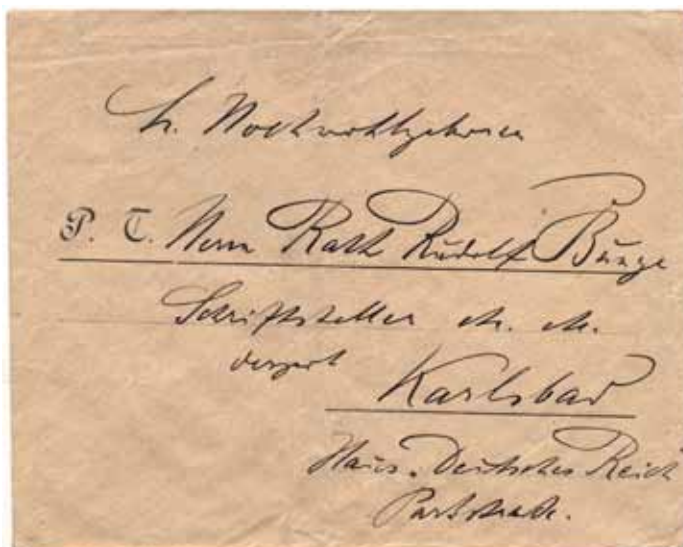 Sr. Hochwohlgeboren
P. T. Herrn Rath Rudolf Bunge
Schriftsteller etc. etc.
derzeit
Karlsbad
Haus „Deutsches Reich“
Parkstraße.